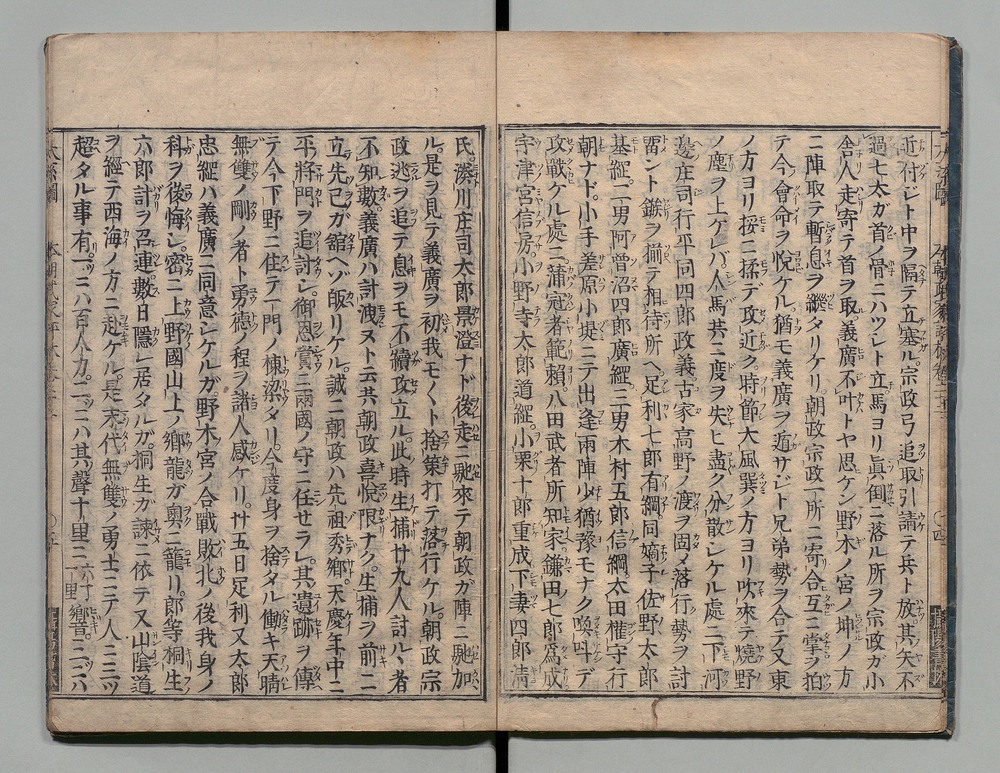 近付ント中ヲ隔テ立塞ル宗政弓追取引請テ兵ト放其矢不
過七太ガ首ノ骨ニハツシト立馬ヨリ眞倒ニ落ル所ヲ宗政ガ小
舎人走寄テ首ヲ取義廣不叶トヤ思ケン野木ノ宮ノ坤ノ方
ニ陣取テ暫息ヲ繼タリケリ朝政宗政一所ニ寄合互ニ掌ヲ拍
テ今會命ヲ悦ケル猶モ義廣ヲ遁サジト兄弟勢ヲ合テ又東
ノ方ヨリ挼ニ揉デ攻近ク時節大風巽ノ方ヨリ吹來テ燒野
ノ塵ヲ上ケレバ人馬共ニ度ヲ失ヒ盡ク分散シケル處ニ下河
邊庄司行平同四郎政義古家高野ノ渡ヲ固メ落行勢ヲ討
留ント鏃ヲ揃テ相待所ヘ足利七郎有綱同嫡子佐野太郎
基綱二男阿曾沼四郎廣綱三男木村五郎信綱太田權守行
朝ナド小手差原小堤ニテ出逢兩陣少猶豫モナク喚叫デ
攻戰ケル處ニ蒲冠者範賴八田武者所知家鎌田七郎爲成
宇津宮信房小野寺太郎道綱小栗十郎重成下妻四郎淸
氏湊川庄司太郎景澄ナド後走ニ馳來テ朝政ガ陣ニ馳加
ル是ヲ見テ義廣ヲ初我モ〱ト捨策打テ落行ケル朝政宗
政逃ヲ追テ息ヲモ不續攻立ル此時生捕廿九人討ルヽ者
不知數義廣ハ討洩ヌト云共朝政喜悅限ナク生捕ヲ前ニ
立先己ガ舘ヘゾ皈リケル誠ニ朝政ハ先祖秀鄉天慶年中ニ
平將門ヲ追討シ御恩賞ニ兩國ノ守ニ任セラレ其遺跡ヲ傳
テ今下野ニ住テ一門ノ棟梁タリ今度身ヲ捨タル働キ天晴
無雙ノ剛ノ者ト勇德ノ程ヲ諸人感ケリ廿五日足利又太郎
忠綱ハ義廣ニ同意シケルガ野木宮ノ合戰敗北ノ後我身ノ
科ヲ後悔シ密ニ上野國山上ノ鄉龍ガ奧ニ籠リ郎等桐生
六郎計ヲ召連數日隱レ居タルガ桐生ガ諫ニ依テ又山陰道
ヲ經テ西海ノ方ニ赴ケル是末代無雙ノ勇士ニテ人ニ三ツ
超タル事有一ニハ百人力二ニハ其聲十里ニ六町一里響三ツハ